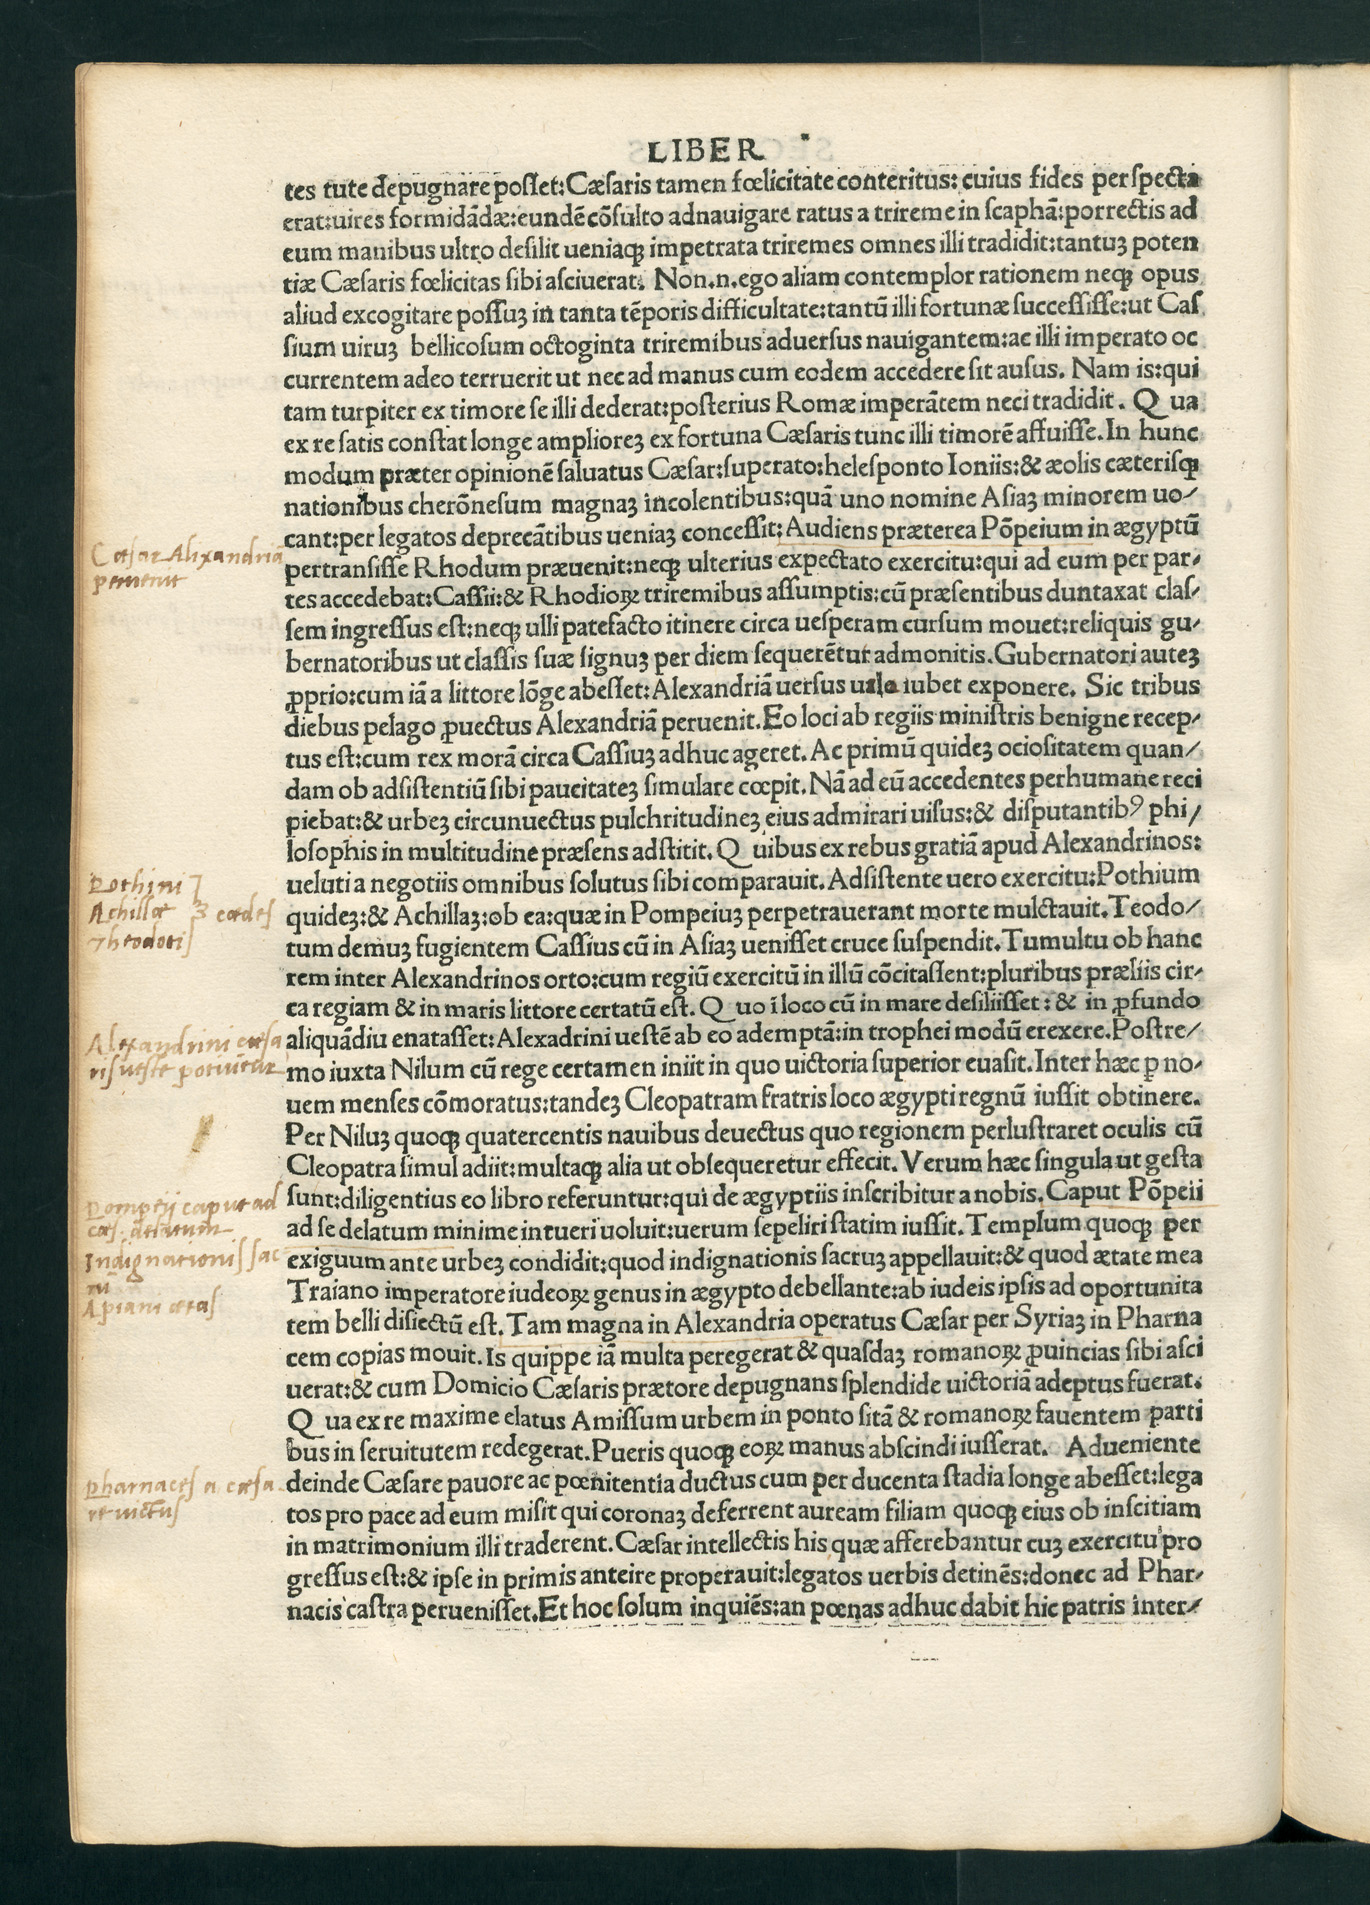 LIBER
tes tute depugnare posset:Cæsaris tamen fœlicitate conteritus: cuius fides perspecta
erat:uires formidādæ:eundē cōsulto adnauigare ratus a trireme in scaphā:porrectis ad
eum manibus ultro desilit ueniaqꝫ impetrata triremes omnes illi tradidit:tantuꝫ poten
tiæ Cæsaris fœlicitas sibi asciuerat. Non.n.ego aliam contemplor rationem neqꝫ opus
aliud excogitare possuꝫ in tanta tēporis difficultate:tantū illi fortunæ successisse:ut Cas
sium uiruꝫ bellicosum octoginta triremibus aduersus nauigantem:ac illi imperato oc
currentem adeo terruerit ut nec ad manus cum eodem accedere sit ausus. Nam is:qui
tam turpiter ex timore se illi dederat:posterius Romæ imperātem neci tradidit. Qua
ex re satis constat longe amplioreꝫ ex fortuna Cæsaris tunc illi timorē affuisse.In hunc
modum præter opinionē saluatus Cæsar:superato:helesponto Ioniis:& æolis cæterisqꝫ
nationibus cherōnesum magnaꝫ incolentibus:quā uno nomine Asiaꝫ minorem uo/
cant:per legatos deprecātibus ueniaꝫ concessit:Audiens præterea Pōpeium in ægyptū
Cæsar Alixandriā
peruenit
pertransisse Rhodum præuenit:neqꝫ ulterius expectato exercitu:qui ad eum per par/
tes accedebat:Cassii:& Rhodioꝝ triremibus assumptis:cū præsentibus duntaxat clas/
sem ingressus est:neqꝫ ulli patefacto itinere circa uesperam cursum mouet:reliquis gu/
bernatoribus ut classis suæ signuꝫ per diem sequerētur admonitis.Gubernatori auteꝫ
ꝓprio:cum iā a littore lōge abesset:Alexandriā uersus uela iubet exponere. Sic tribus
diebus pelago ꝓuectus Alexandriā peruenit.Eo loci ab regiis ministris benigne recep/
tus est:cum rex morā circa Cassiuꝫ adhuc ageret.Ac primū quideꝫ ociositatem quan/
dam ob adsistentiū sibi paucitateꝫ simulare cœpit.Nā ad eū accedentes perhumane reci
piebat:& urbeꝫ circunuectus pulchritudineꝫ eius admirari uisus:& disputantibꝰ phi/
losophis in multitudine præsens adstitit.Quibus ex rebus gratiā apud Alexandrinos:
ueluti a negotiis omnibus solutus sibi comparauit.Adsistente uero exercitu:Pothium
Pothini
Achillæ cædes
Theodoti
quideꝫ:& Achillaꝫ:ob ea:quæ in Pompeiuꝫ perpetrauerant morte mulctauit.Teodo/
tum demuꝫ fugientem Cassius cū in Asiaꝫ uenisset cruce suspendit.Tumultu ob hanc
rem inter Alexandrinos orto:cum regiū exercitū in illū cōcitassent:pluribus præliis cir/
ca regiam & in maris littore certatū est.Quo ī loco cū in mare desiliisset:& in ꝓfundo
aliquādiu enatasset:Alexadrini uestē ab eo ademptā:in trophei modū erexere.Postre/
Alexandrini cæsa
ris ueste potiuntur
mo iuxta Nilum cū rege certamen iniit in quo uictoria superior euasit.Inter hæc ꝑ no/
uem menses cōmoratus:tandeꝫ Cleopatram fratris loco ægypti regnū iussit obtinere.
Per Niluꝫ quoqꝫ quatercentis nauibus deuectus quo regionem perlustraret oculis cū
Cleopatra simul adiit:multaqꝫ alia ut obsequeretur effecit.Verum hæc singula ut gesta
sunt:diligentius eo libro referuntur:qui de ægyptiis inscribitur a nobis.Caput Pōpeii
Pompeij caput ad
cæs. delatum
ad se delatum minime intueri uoluit:uerum sepeliri statim iussit.Templum quoqꝫ per
exiguum ante urbeꝫ condidit:quod indignationis sacruꝫ appellauit:& quod ætate mea
Indignationis sac
rū
Apiani ætas
Traiano imperatore iudeoꝝ genus in ægypto debellante:ab iudeis ipsis ad oportunita
tem belli disiectū est.Tam magna in Alexandria operatus Cæsar per Syriaꝫ in Pharna
cem copias mouit.Is quippe iā multa peregerat & quasdaꝫ romanoꝝ ꝓuincias sibi asci
uerat:& cum Domicio Cæsaris prætore depugnans splendide uictoriā adeptus fuerat.
Qua ex re maxime elatus Amissum urbem in ponto sitā & romanoꝝ fauentem parti
bus in seruitutem redegerat.Pueris quoqꝫ eoꝝ manus abscindi iusserat. Adueniente
deinde Cæsare pauore ac pœnitentia ductus cum per ducenta stadia longe abesset:lega
Pharnaces a cæsa
re uictus
tos pro pace ad eum misit qui coronaꝫ deferrent auream filiam quoqꝫ eius ob inscitiam
in matrimonium illi traderent.Cæsar intellectis his quæ afferebantur cuꝫ exercitu pro
gressus est:& ipse in primis anteire properauit:legatos uerbis detinēs:donec ad Phar/
nacis castra peruenisset.Et hoc solum inquiēs:an pœnas adhuc dabit hic patris inter/